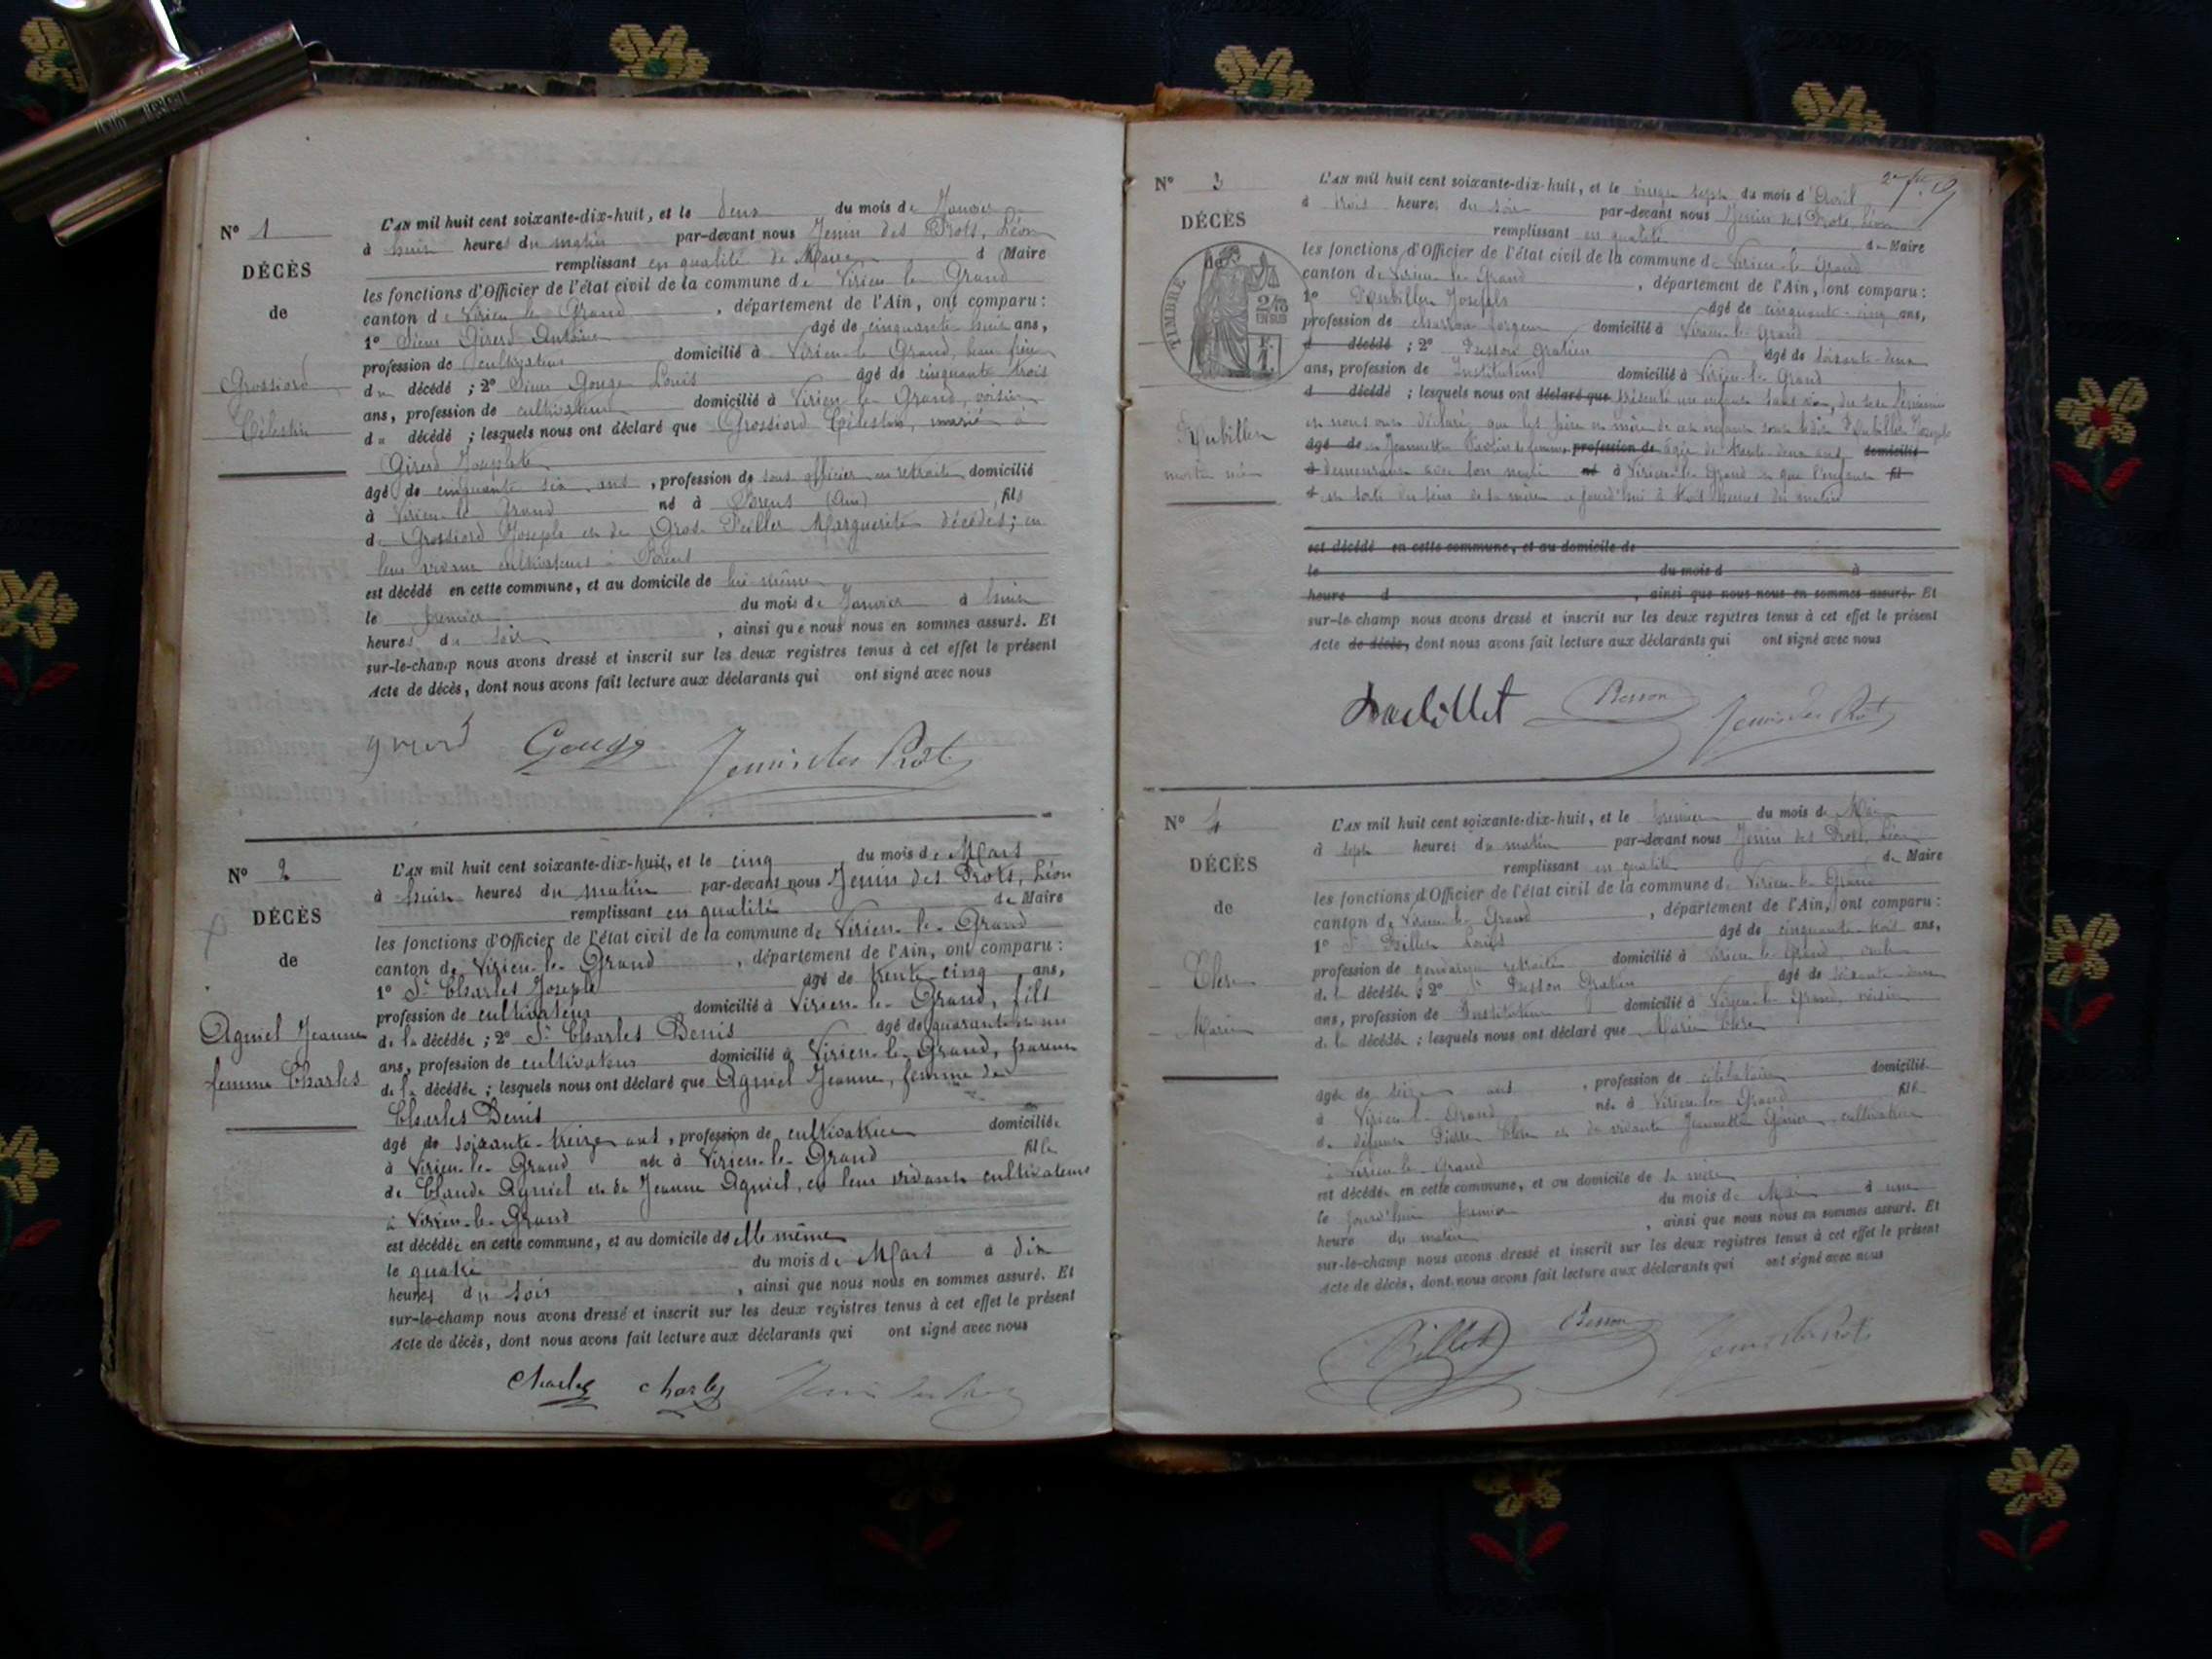 N° 1
DÉCÈS
de
Grossiord
Célestin
L'AN mil huit cent soixante-dix-huit, et le deux du mois de Janvier
à huit heures du matin par-devant nous Jenin des Prots, Léon
remplissant en qualité de Maire d Maire
les fonctions d'Officier de l'état civil de la commune de Virieu le Grand
canton de Virieu le Grand, département de l'Ain, ont comparu :
1° Sieur Girerd Antoine âgé de cinquante huit ans,
profession de cultivateur domicilié à Virieu-le-Grand, beau frère
du décédé ; 2° Sieur Gouge Louis âgé de cinquante trois
ans, profession de cultivateur domicilié à Virieu-le-Grand, voisin
du décédé ; lesquels nous ont déclaré que Grossiord Célestin, marié à
Girerd Josephte
âgé de cinquante six ans, profession de sous officier en retraite domicilié
à Virieu-le-Grand né à (Ain) fils
de Grossiord Joseph et de Marguerite décédés ; en
leur vivant cultivateurs à
est décédé en cette commune, et au domicile de lui-même
le premier du mois de Janvier à huit
heures du soir, ainsi que nous nous en sommes assuré. Et
sur-le-champ nous avons dressé et inscrit sur les deux registres tenus à cet effet le présent
Acte de décès, dont nous avons fait lecture aux déclarants qui ont signé avec nous
Gouge Jenin des Prots
N° 2
DÉCÈS
de
Agniel Jeanne
femme Charles
L'AN mil huit cent soixante-dix-huit, et le cinq du mois de Mars
à huit heures du matin par-devant nous Jenin des Prots, Léon
remplissant en qualité de Maire
les fonctions d'Officier de l'état civil de la commune de Virieu-le-Grand
canton de Virieu-le-Grand, département de l'Ain, ont comparu :
1° Sr Charles Joseph âgé de trente-cinq ans,
profession de cultivateur domicilié à Virieu-le-Grand, fils
de la décédée ; 2° Sr Charles Denis âgé de quarante et un
ans, profession de cultivateur domicilié à Virieu-le-Grand, parent
de la décédée ; lesquels nous ont déclaré que Agniel Jeanne, femme de
Charles Denis
âgé de soixante-treize ans, profession de cultivatrice domiciliée
à Virieu-le-Grand née à Virieu-le-Grand fille
de Claude Agniel et de Jeanne Agniel, en leur vivant cultivateurs
à Virieu-le-Grand
est décédée en cette commune, et au domicile d'elle même
le quatre du mois de Mars à dix
heures du soir, ainsi que nous nous en sommes assuré. Et
sur-le-champ nous avons dressé et inscrit sur les deux registres tenus à cet effet le présent
Acte de décès, dont nous avons fait lecture aux déclarants qui ont signé avec nous
Charles Charles
N° 3
DÉCÈS
de
TIMBRE
mort né
L'AN mil huit cent soixante-dix-huit, et le vingt sept du mois d'Avril
à trois heures du soir par-devant nous Jenin des Prots, Léon
remplissant en qualité de Maire
les fonctions d'Officier de l'état civil de la commune de Virieu-le-Grand
canton de Virieu-le-Grand, département de l'Ain, ont comparu :
1° Joseph âgé de cinquante-cinq ans,
profession de charron forgeur domicilié à Virieu-le-Grand
d décédé ; 2° Besson Gratien âgé de soixante-deux
ans, profession de Instituteur domicilié à Virieu-le-Grand
d décédé ; lesquels nous ont déclaré que présenté un enfant sans vie, du sexe féminin
et nous ont déclaré que les père et mère de cet enfant sont Joseph
âgé de et Jeannette sa femme profession de âgée de trente-deux ans domicilié
à demeurant avec son mari né à Virieu-le-Grand et que l'enfant fil
d est sorti du sein de sa mère aujourd'hui à huit heures du matin
est décédé en cette commune, et au domicile de
le du mois d à
heure d, ainsi que nous nous en sommes assuré. Et
sur-le-champ nous avons dressé et inscrit sur les deux registres tenus à cet effet le présent
Acte de décès, dont nous avons fait lecture aux déclarants qui ont signé avec nous
Besson Jenin des Prots
N° 4
DÉCÈS
de
Clerc
Marie
L'AN mil huit cent soixante-dix-huit, et le premier du mois de Mai
à sept heures du matin par-devant nous Jenin des Prots, Léon
remplissant en qualité de Maire
les fonctions d'Officier de l'état civil de la commune de Virieu-le-Grand
canton de Virieu-le-Grand, département de l'Ain, ont comparu :
1° Sr Billet Louis âgé de cinquante-trois ans,
profession de gendarme retraité domicilié à Virieu-le-Grand, oncle
de la décédée ; 2° Sr Besson Gratien âgé de soixante-deux
ans, profession de Instituteur domicilié à Virieu-le-Grand, voisin
de la décédée ; lesquels nous ont déclaré que Marie Clerc
âgée de seize ans, profession de célibataire domiciliée
à Virieu-le-Grand née à Virieu-le-Grand fille
de défunt Pierre Clerc et de vivante Jeannette cultivatrice
à Virieu-le-Grand
est décédée en cette commune, et au domicile de sa mère
le jourd'hui premier du mois de Mai à une
heure du matin, ainsi que nous nous en sommes assuré. Et
sur-le-champ nous avons dressé et inscrit sur les deux registres tenus à cet effet le présent
Acte de décès, dont nous avons fait lecture aux déclarants qui ont signé avec nous
Billet Besson Jenin des Prots